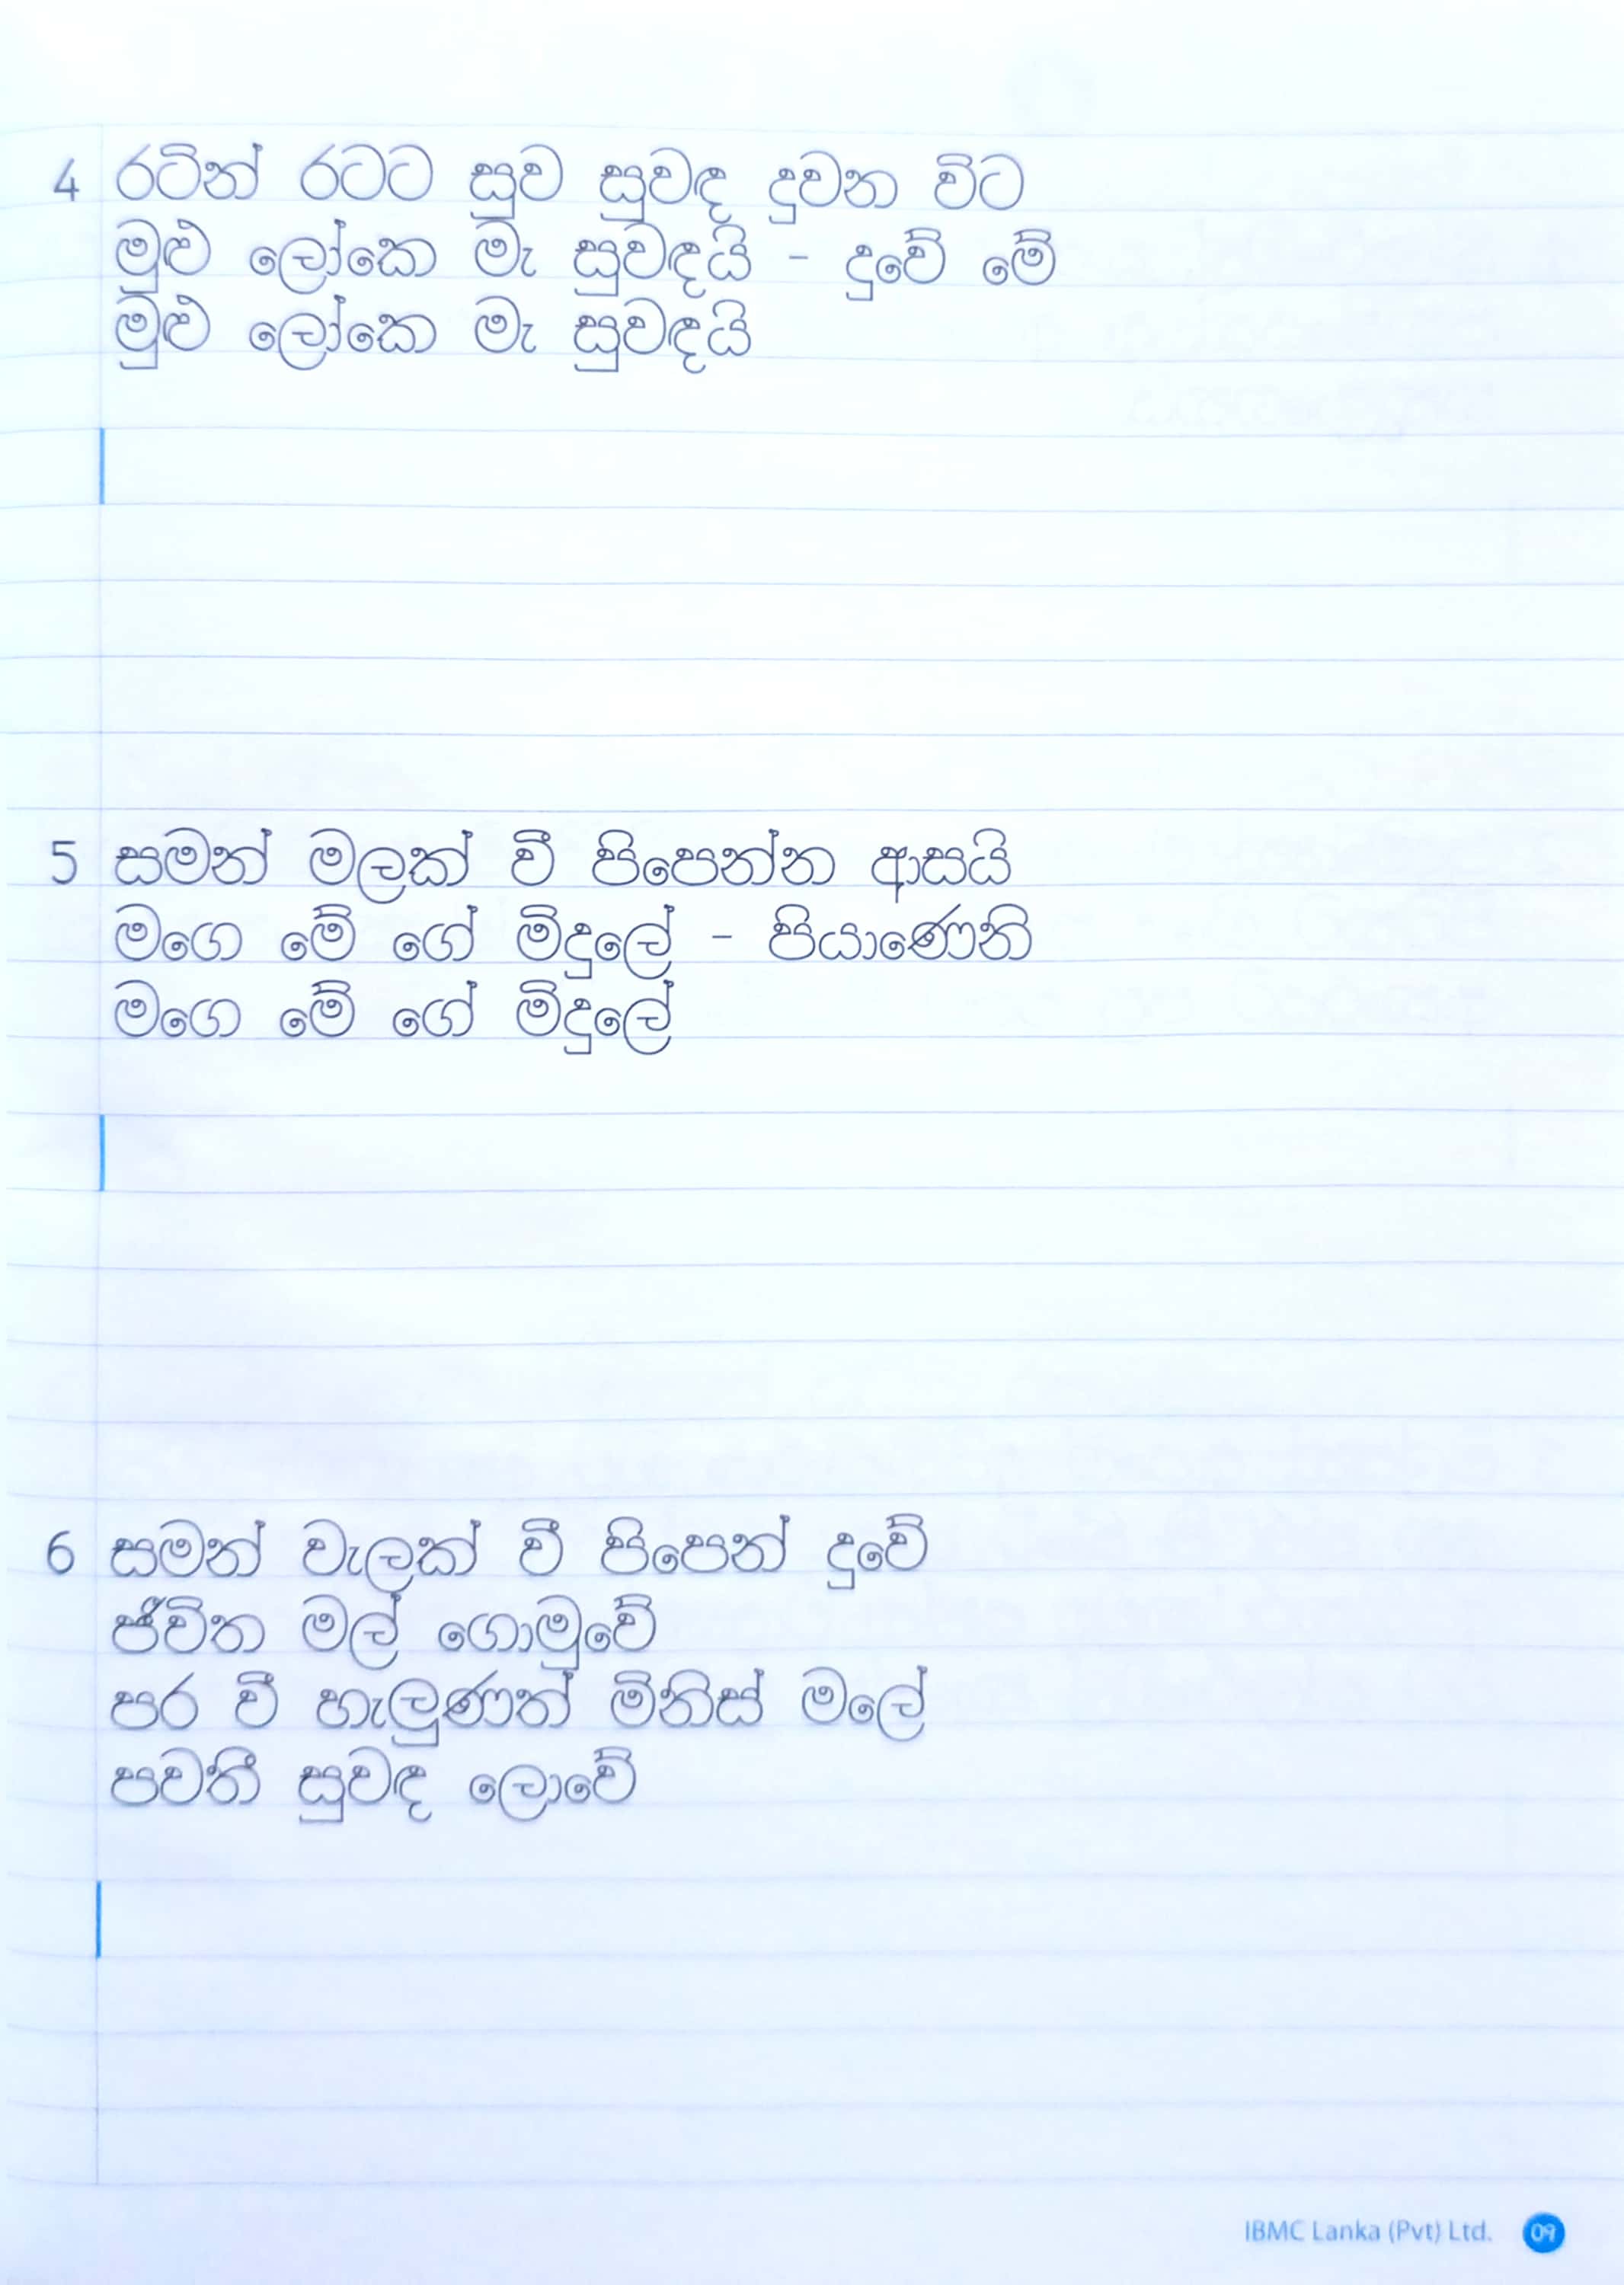 4 රටින් රටට සුව සුවඳ දුවන විට
මුළු ලෝකෙ මැ සුවඳයි - දුවේ මේ
මුළු ලෝකෙ මැ සුවඳයි
5 සමන් මලක් වී පිපෙන්න ආසයි
මගෙ මේ ගේ මිදුලේ - පියාණෙනි
මගෙ මේ ගේ මිදුලේ
6 සමන් වැලක් වී පිපෙන් දුවේ
ජීවිත මල් ගොමුවේ
පර වී හැලුණත් මිනිස් මලේ
පවතී සුවඳ ලොවේ
IBMC Lanka (Pvt) Ltd. 09